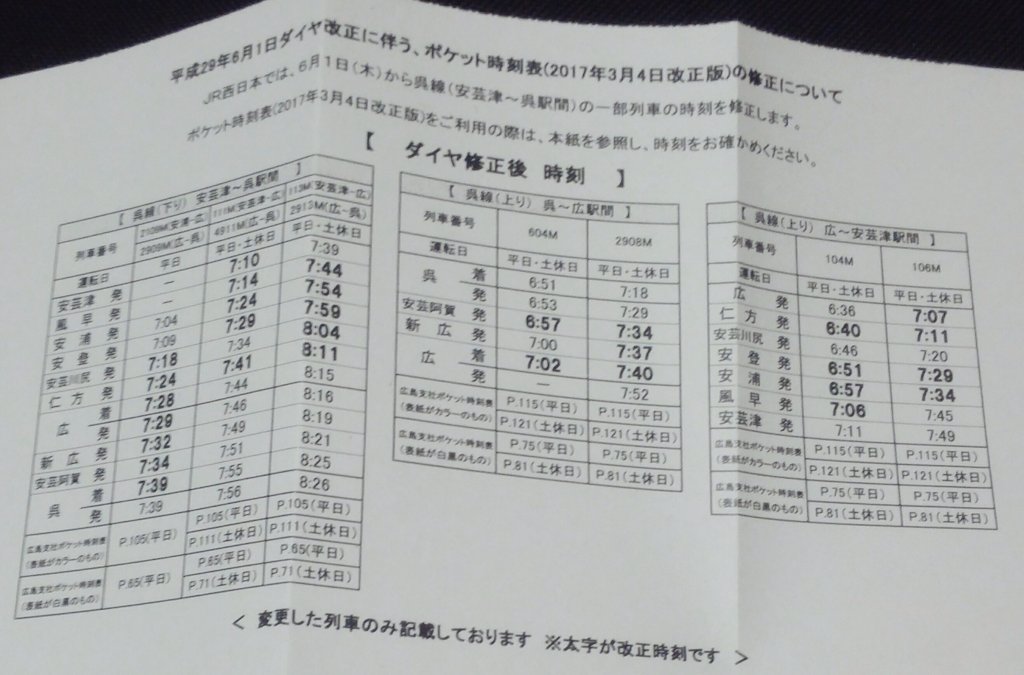 平成29年6月1日ダイヤ改正に伴う、ポケット時刻表(2017年3月4日改正版)の修正について
JR西日本では、6月1日(木)から呉線(安芸津～呉駅間)の一部列車の時刻を修正します。
ポケット時刻表(2017年3月4日改正版)をご利用の際は、本紙を参照し、時刻をお確かめください。
【 ダイヤ修正後 時刻 】
【 呉線(下り) 安芸津～呉駅間 】
列車番号 2109M(安浦−広) 111M(安芸津−広) 113M(安芸津−広)
2909M(広−呉) 4911M(広−呉) 2913M(広−呉)
運転日 平日 平日・土休日 平日・土休日
安芸津 発 — 7:10 7:39
風早 発 — 7:14 7:44
安浦 発 7:04 7:24 7:54
安登 発 7:09 7:29 7:59
安芸川尻 発 7:18 7:34 8:04
仁方 発 7:24 7:41 8:11
広 着 7:28 7:44 8:15
発 7:29 7:46 8:16
新広 発 7:32 7:49 8:19
安芸阿賀 発 7:34 7:51 8:21
呉 着 7:39 7:55 8:25
発 7:39 7:56 8:26
広島支社ポケット時刻表 P.105(平日) P.105(平日) P.105(平日)
(表紙がカラーのもの) P.111(土休日) P.111(土休日)
広島支社ポケット時刻表 P.65(平日) P.65(平日) P.65(平日)
(表紙が白黒のもの) P.71(土休日) P.71(土休日)
【 呉線(上り) 呉～広駅間 】
列車番号 604M 2908M
運転日 平日・土休日 平日・土休日
呉 着 6:51 7:18
発 6:53 7:29
安芸阿賀 発 6:57 7:34
新広 発 7:00 7:37
広 着 7:02 7:40
発 — 7:52
広島支社ポケット時刻表 P.115(平日) P.115(平日)
(表紙がカラーのもの) P.121(土休日) P.121(土休日)
広島支社ポケット時刻表 P.75(平日) P.75(平日)
(表紙が白黒のもの) P.81(土休日) P.81(土休日)
【 呉線(上り) 広～安芸津駅間 】
列車番号 104M 106M
運転日 平日・土休日 平日・土休日
広 発 6:36 7:07
仁方 発 6:40 7:11
安芸川尻 発 6:46 7:20
安登 発 6:51 7:29
安浦 発 6:57 7:34
風早 発 7:06 7:45
安芸津 発 7:11 7:49
広島支社ポケット時刻表 P.115(平日) P.115(平日)
(表紙がカラーのもの) P.121(土休日) P.121(土休日)
広島支社ポケット時刻表 P.75(平日) P.75(平日)
(表紙が白黒のもの) P.81(土休日) P.81(土休日)
< 変更した列車のみ記載しております ※太字が改正時刻です >